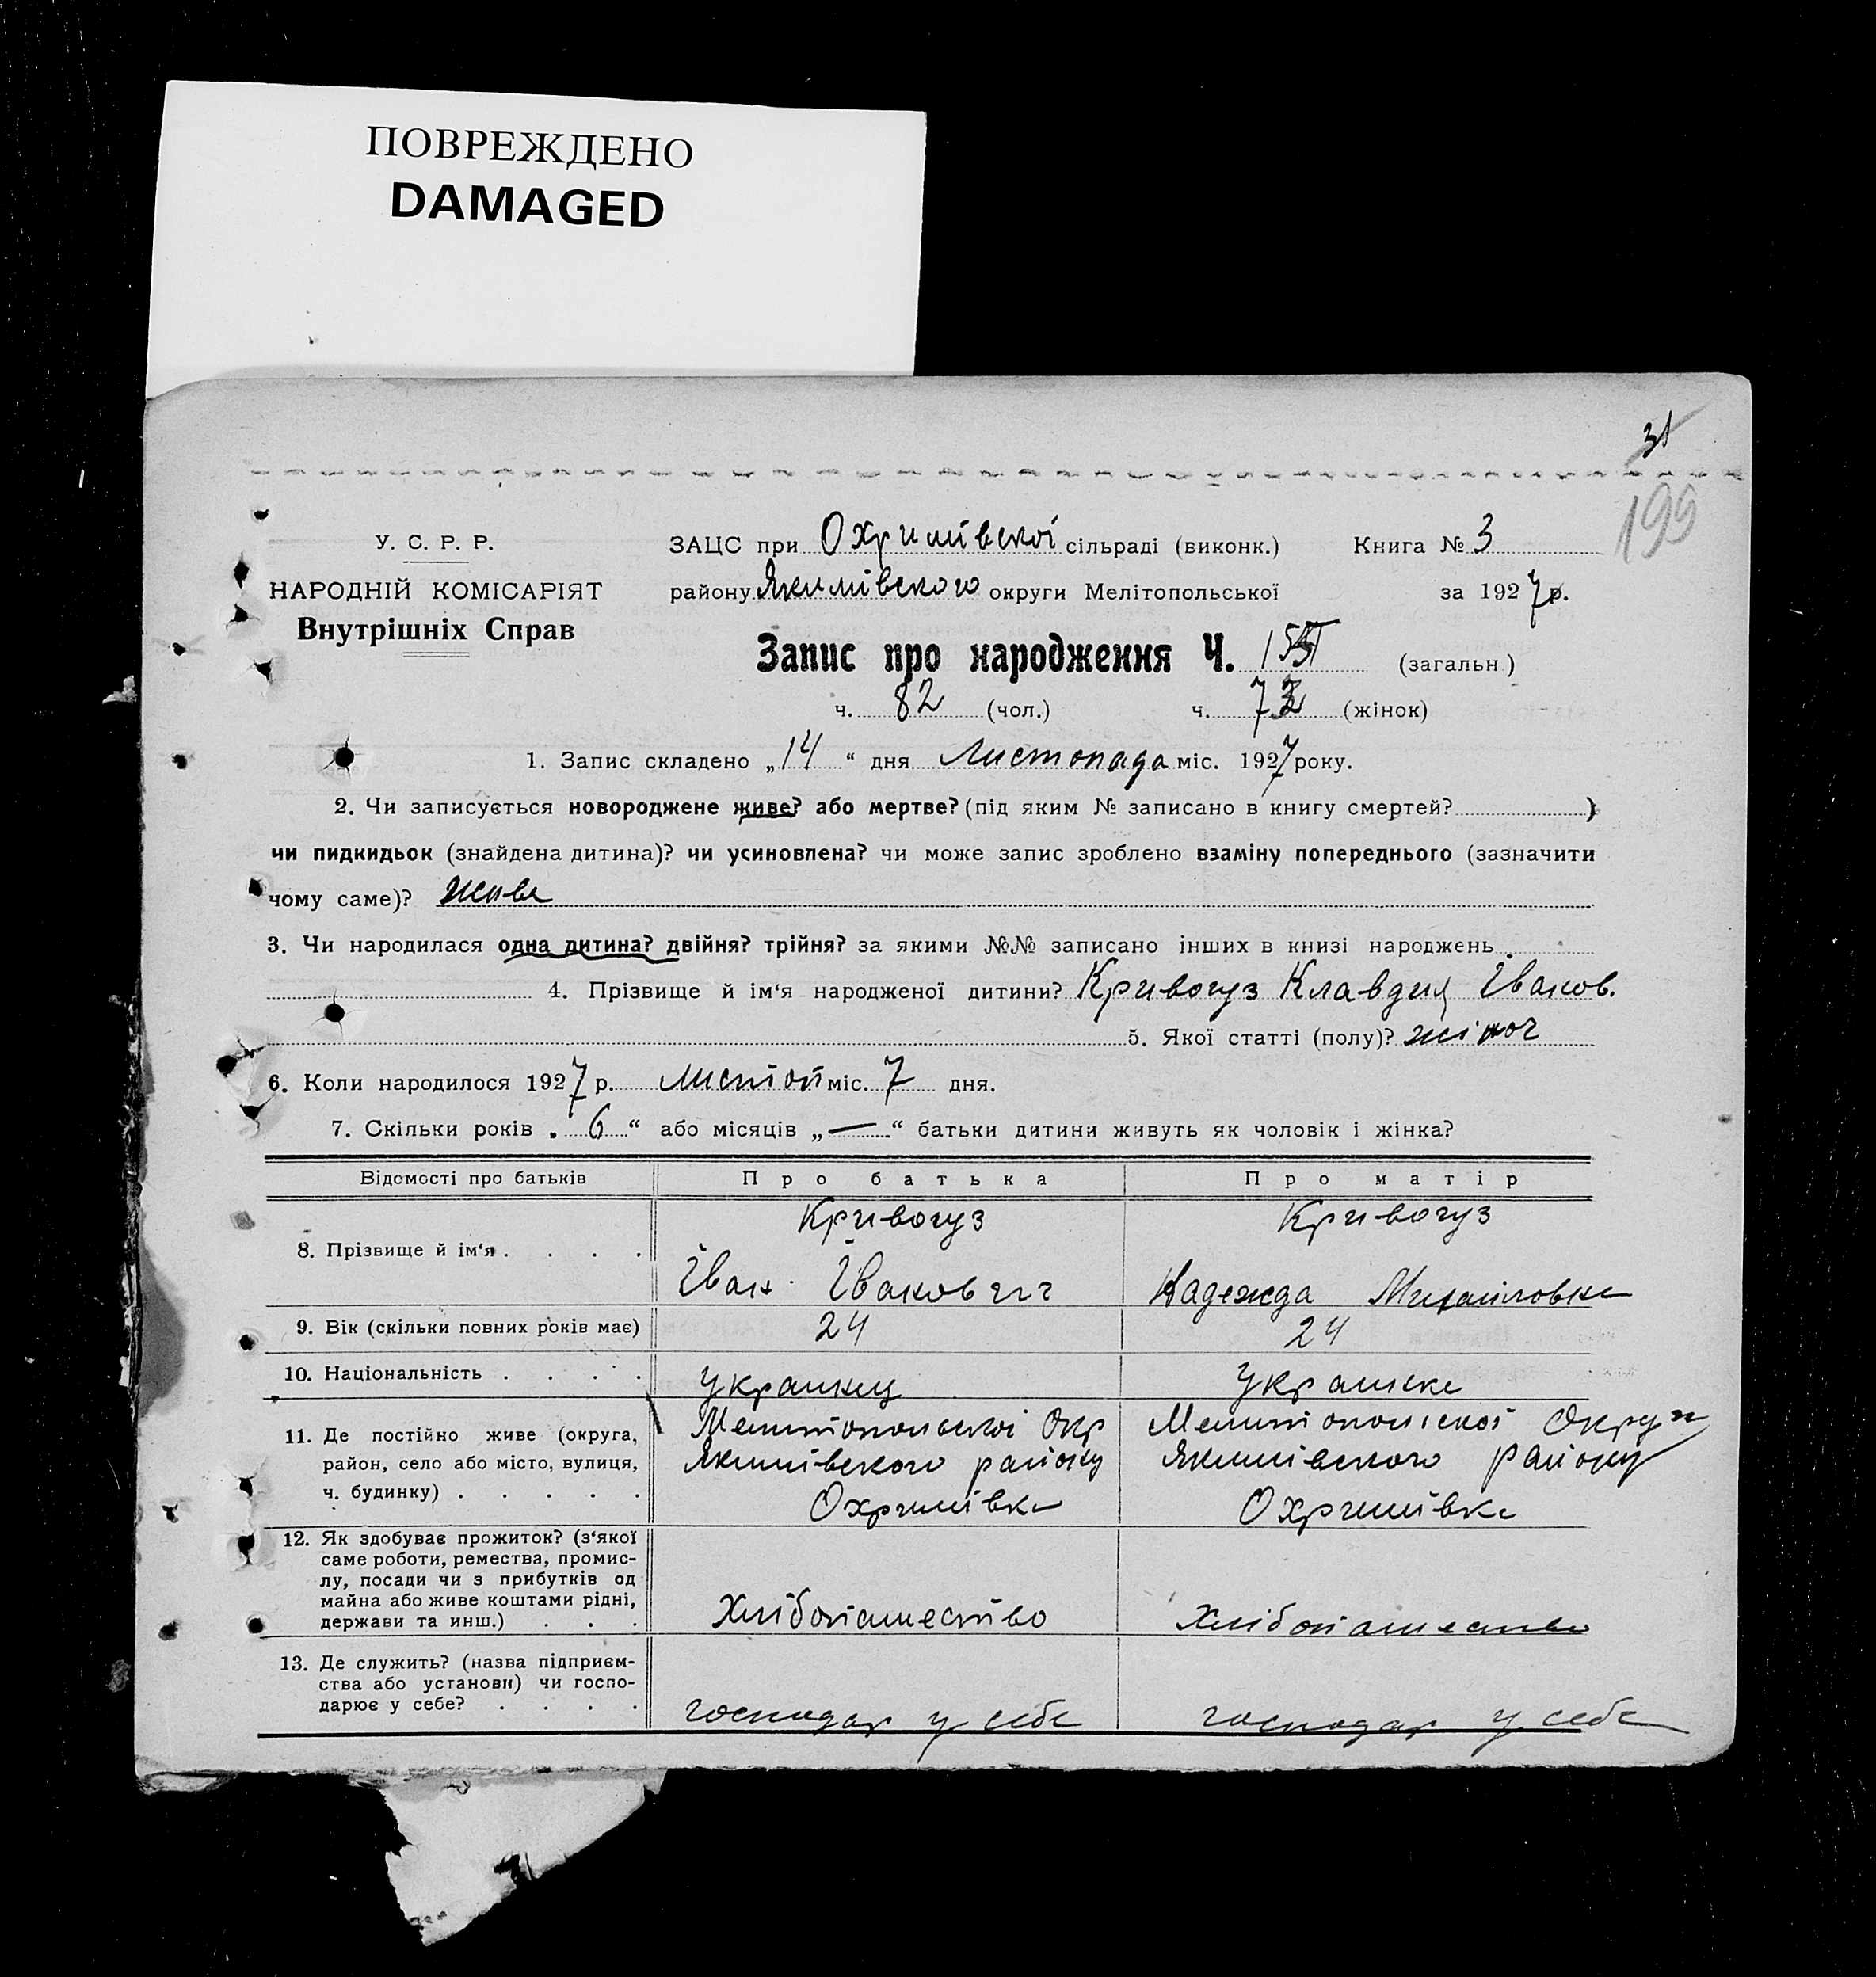 ПОВРЕЖДЕНО
DAMAGED
31
199
У. С. Р. Р.
НАРОДНІЙ КОМІСАРІЯТ
Внутрішніх Справ
ЗАЦС при Охримівскої сільраді (виконк.) Книга № 3
району Якимівского округи Мелітопольської за 1927 р.
Запис про народження Ч. (загальн.)
ч. 82 (чол.) ч. (жінок)
1. Запис складено „14“ дня Листопада міс. 1927 року.
2. Чи записується новороджене живе? або мертве? (під яким № записано в книгу смертей? )
чи пидкидьок (знайдена дитина)? чи усиновлена? чи може запис зроблено взаміну попереднього (зазначити
чому саме)? живе
3. Чи народилася одна дитина? двійня? трійня? за якими №№ записано інших в книзі народжень
4. Прізвище й ім‘я народженої дитини? Кривогуз Клавдия Іванов.
5. Якої статті (полу)? жіноч
6. Коли народилося 1927 р. листоп міс. 7 дня.
7. Скільки років „6“ або місяців „—“ батьки дитини живуть як чоловік і жінка?
Відомості про батьків Про батька Про матір
8. Прізвище й ім‘я . . . . Кривогуз Іван Іванович Кривогуз Надежда Михайловна
9. Вік (скільки повних років має) 24 24
10. Національність . . . . украинец украинка
11. Де постійно живе (округа, район, село або місто, вулиця, ч. будинку) . . . . . Мелитопольскоі Окр Якимівского району Охримівка Мелитопольскоі Округи Якимівского району Охримівка
12. Як здобуває прожиток? (з‘якої саме роботи, ремества, промислу, посади чи з прибутків од майна або живе коштами рідні, держави та инш.) . . . Хлібопашество Хлібопашество
13. Де служить? (назва підприємства або установи) чи господарює у себе? . . . . господар у себе господар у себе